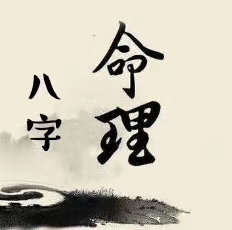 命理
八字